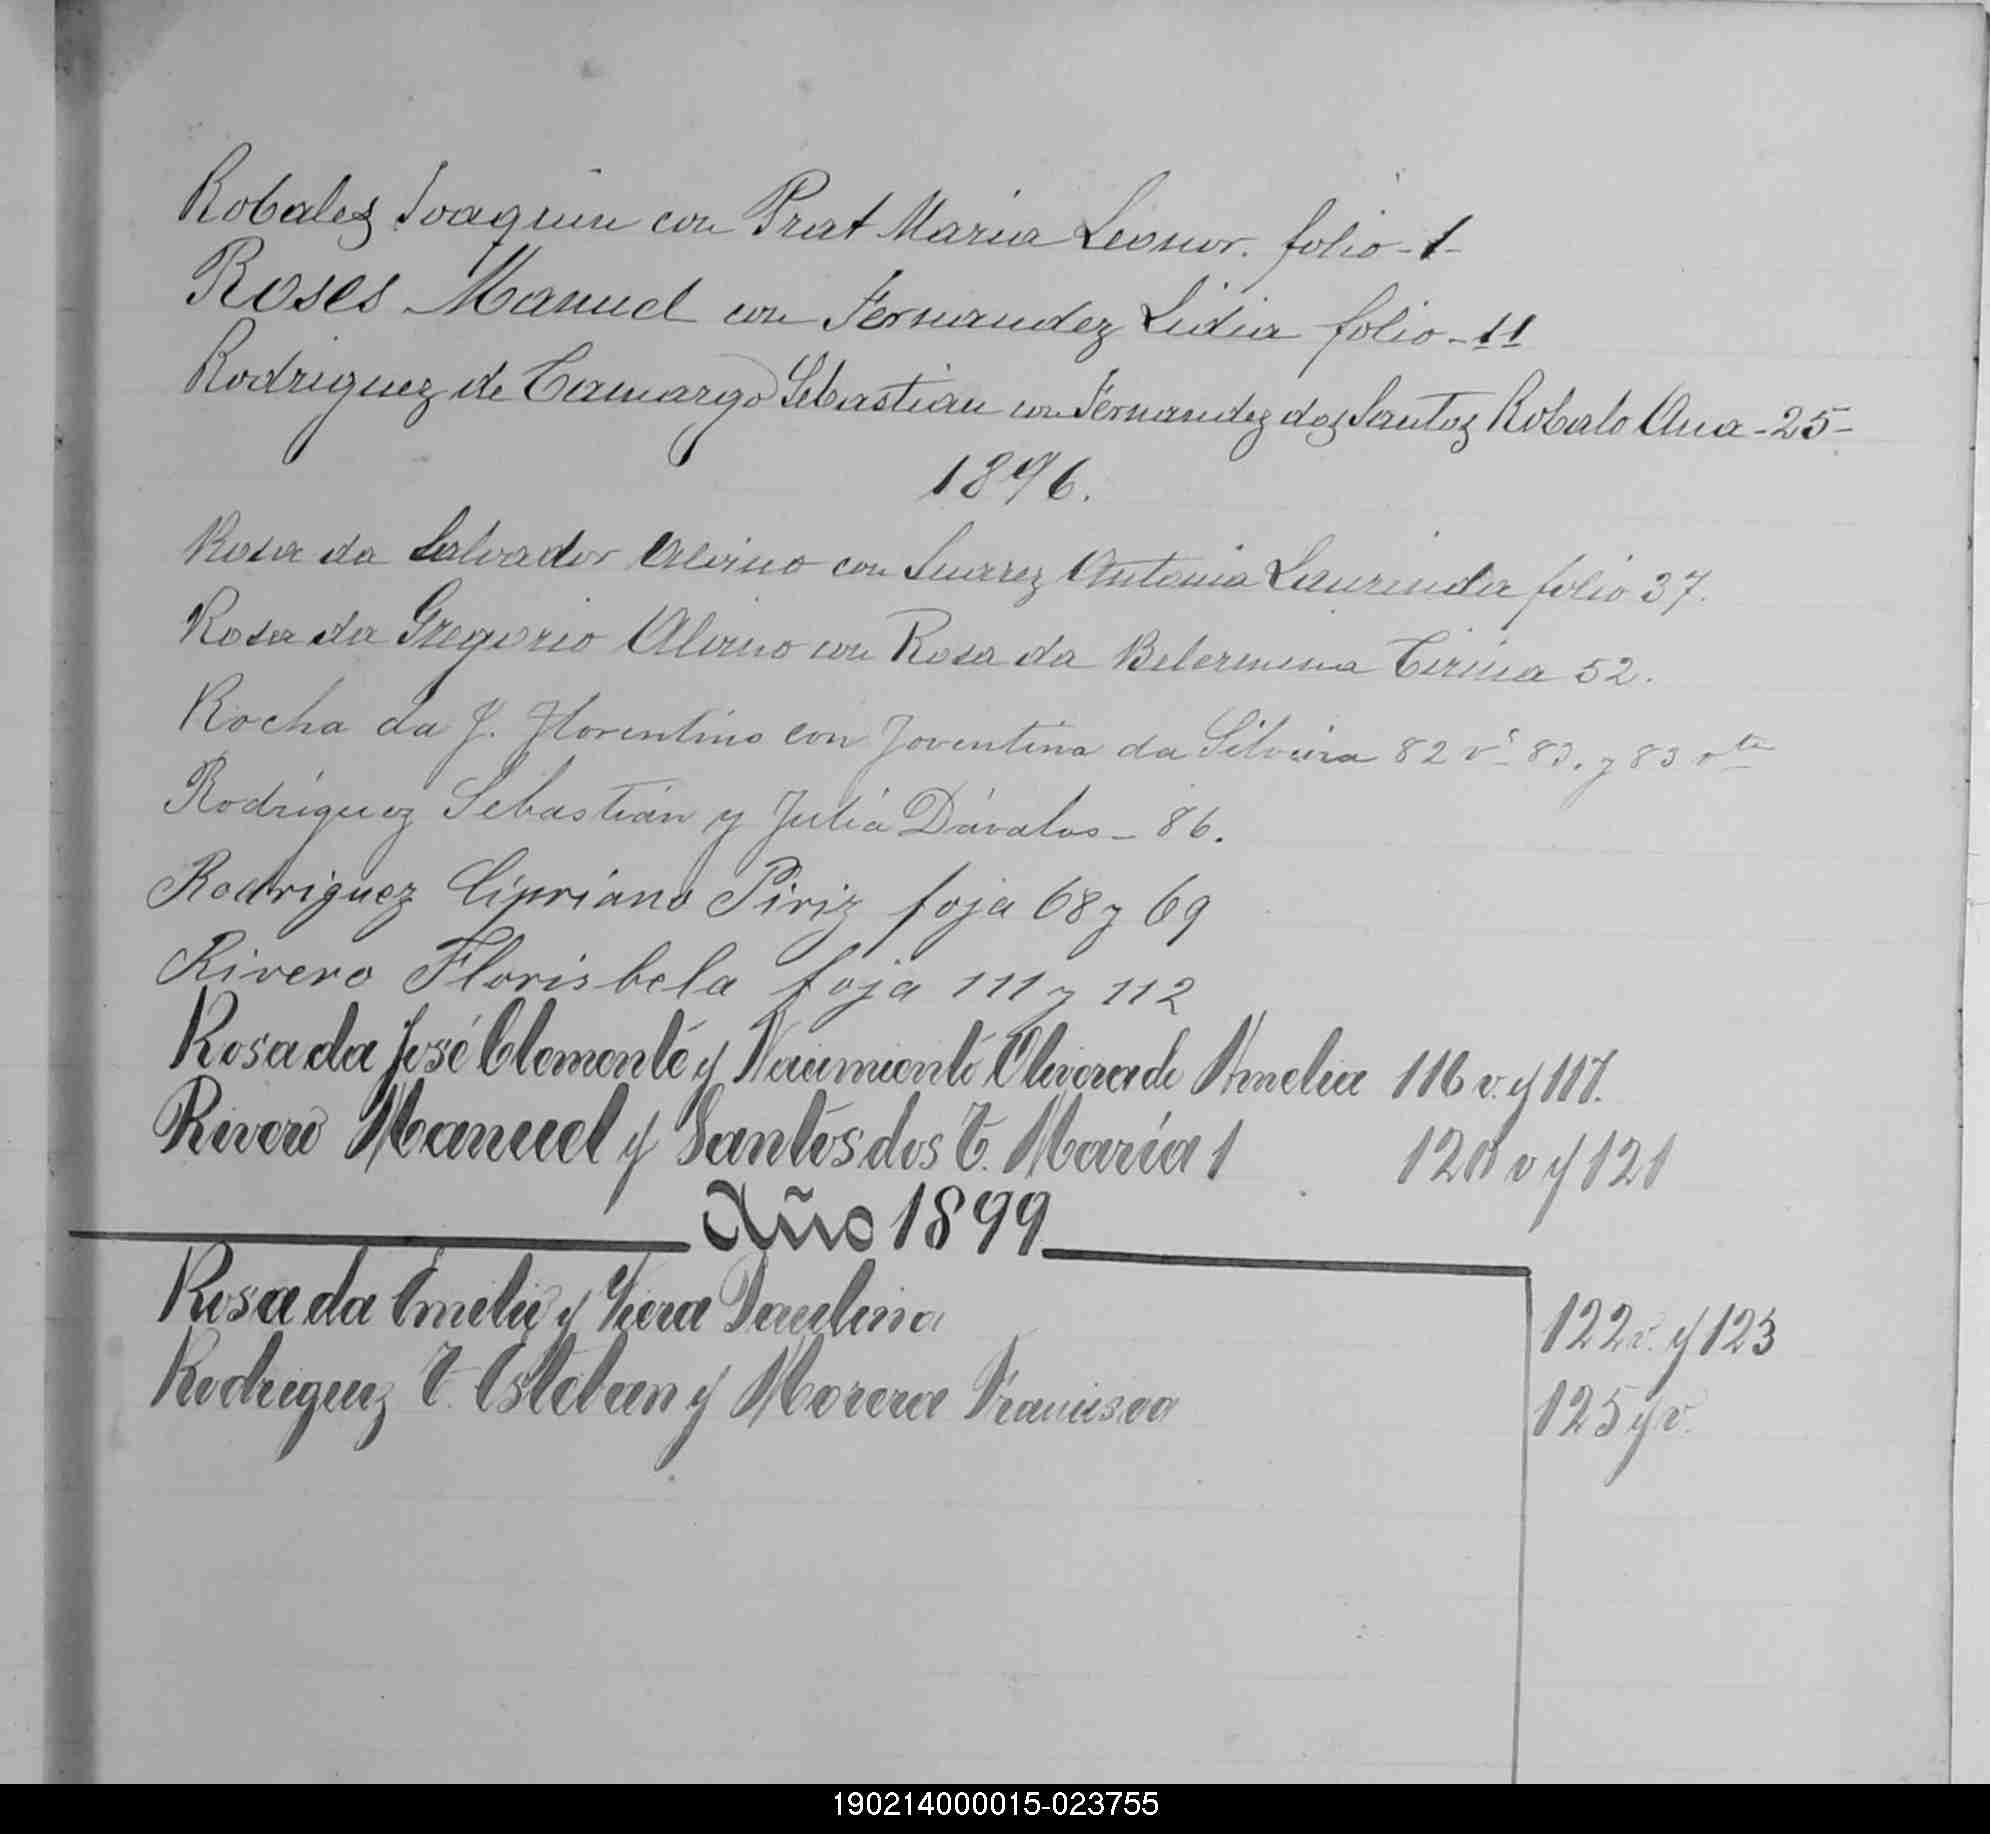 Robales Joaquin con Prat Maria Leonor. folio - 1 -
Roses Manuel con Fernandez Lidia folio - 11
Rodriguez de Camargo Sebastian con Fernandez dos Santos Robalo Ana - 25 -
1896.
Rosa da Salvador Alvino con Suarez Antonia Laurinda folio 37.
Rosa da Gregorio Alvino con Rosa da Belermina Cirina 52.
Rocha da J. Florentino con Joventina da Silveira 82 vº 83. y 83 vta
Rodríguez Sebastián y Julia Dávalos - 86.
Rodriguez Cipriano Piriz foja 68 y 69
Rivero Florisbela foja 111 y 112
Rosa da José Clemente y Nacimiento Olivera de Amelia 116 v. y 117.
Rivero Manuel y Santos dos T. María 1 120 v y 121
Año 1899
Rosa da Emelio y Paulina 122 v. y 123
Rodriguez T. Esteban y Morera Francisca 125 y v.
190214000015-023755